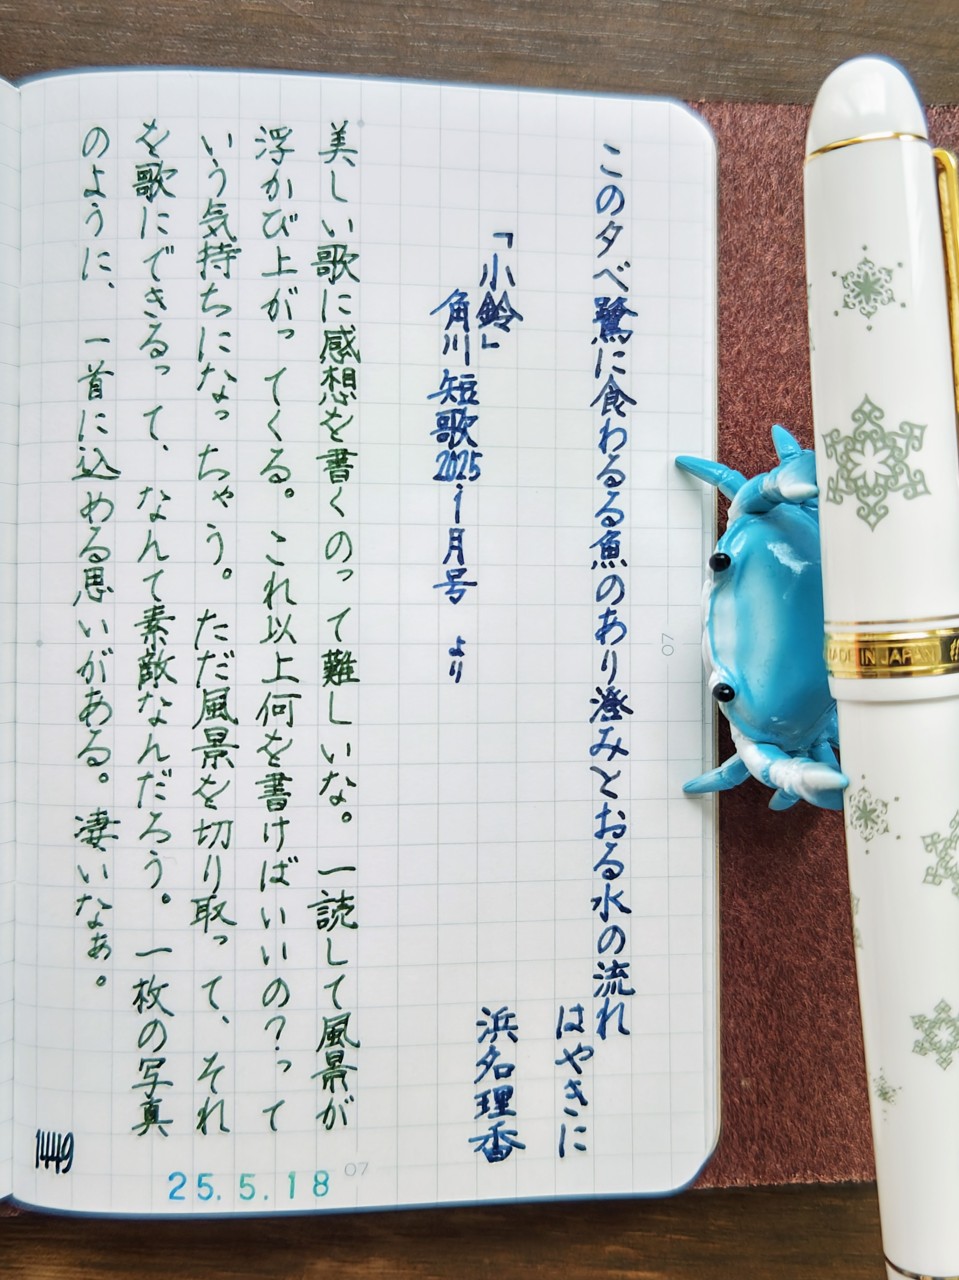 この夕べ鷺に食わるる魚のあり澄みとおる水の流れ
はやきに
浜名理香
「小鈴」
角川短歌2025.1月号 より
美しい歌に感想を書くのって難しいな。一読して風景が
浮かび上がってくる。これ以上何を書けばいいの?って
いう気持ちになっちゃう。ただ風景を切り取って、それ
を歌にできるって、なんて素敵なんだろう。一枚の写真
のように、一首に込める思いがある。凄いなぁ。
1449
25.5.18
07
07
MADE IN JAPAN